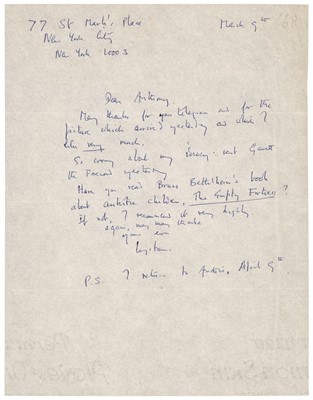 77 St Mark's Place
New York City
New York 10003
March 9th
Dear Anthony,
Many thanks for your telegram and for the
picture which arrived yesterday and which I
like very much.
So sorry about my
the Record yesterday
Have you read Bruno Bettelheim's book
about autistic children, The Empty Fortress?
If not, I recommend it very highly
again, many many thanks
yours ever
P.S. I return to Austria, April 9th